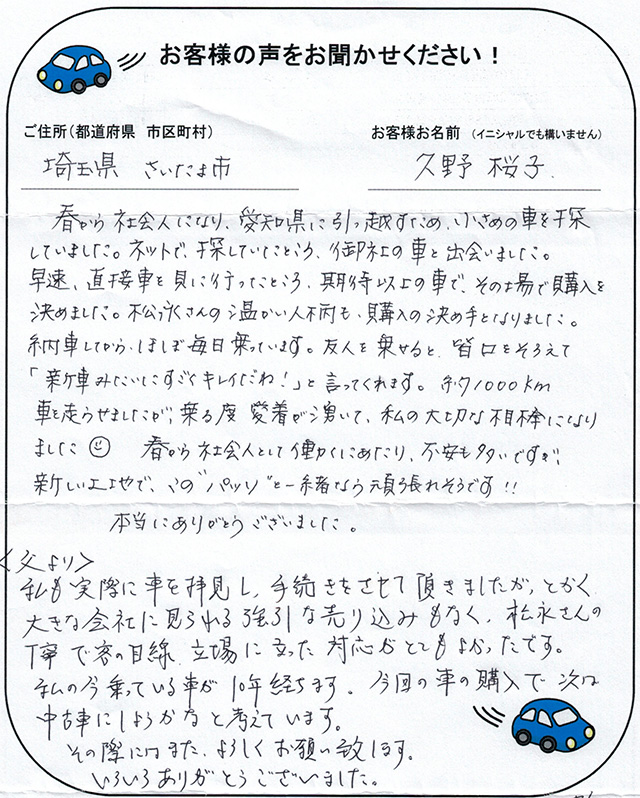 お客様の声をお聞かせください！
ご住所(都道府県 市区町村)
お客様お名前 (イニシャルでも構いません)
埼玉県 さいたま市
久野 桜子
春から社会人になり、愛知県に引っ越すため、小さめの車を探
していました。ネットで、探していたところ、御社の車と出会いました。
早速、直接車を見に行ったところ、期待以上の車で、その場で購入を
決めました。松永さんの温かい人柄も、購入の決め手となりました。
納車してから、ほぼ毎日乗っています。友人を乗せると、皆口をそろえて
「新車みたいにすごくキレイだね！」と言ってくれます。約1000km
車を走らせましたが、乗る度 愛着が湧いて、私の大切な相棒になり
ました☺ 春から社会人として働くにあたり、不安も多いですが、
新しい土地で、この"パッソ"と一緒なら頑張れそうです!!
本当にありがとうございました。
<父より>
私も実際に車を拝見し、手続きをさせて頂きましたが、とかく
大きな会社に見られる強引な売り込みもなく、松永さんの
丁寧で客の目線、立場に立った対応がとてもよかったです。
私の今乗っている車が10年経ちます。今回の車の購入で次は
中古車にしようかなと考えています。
その際にはまた、よろしくお願い致します。
いろいろありがとうございました。